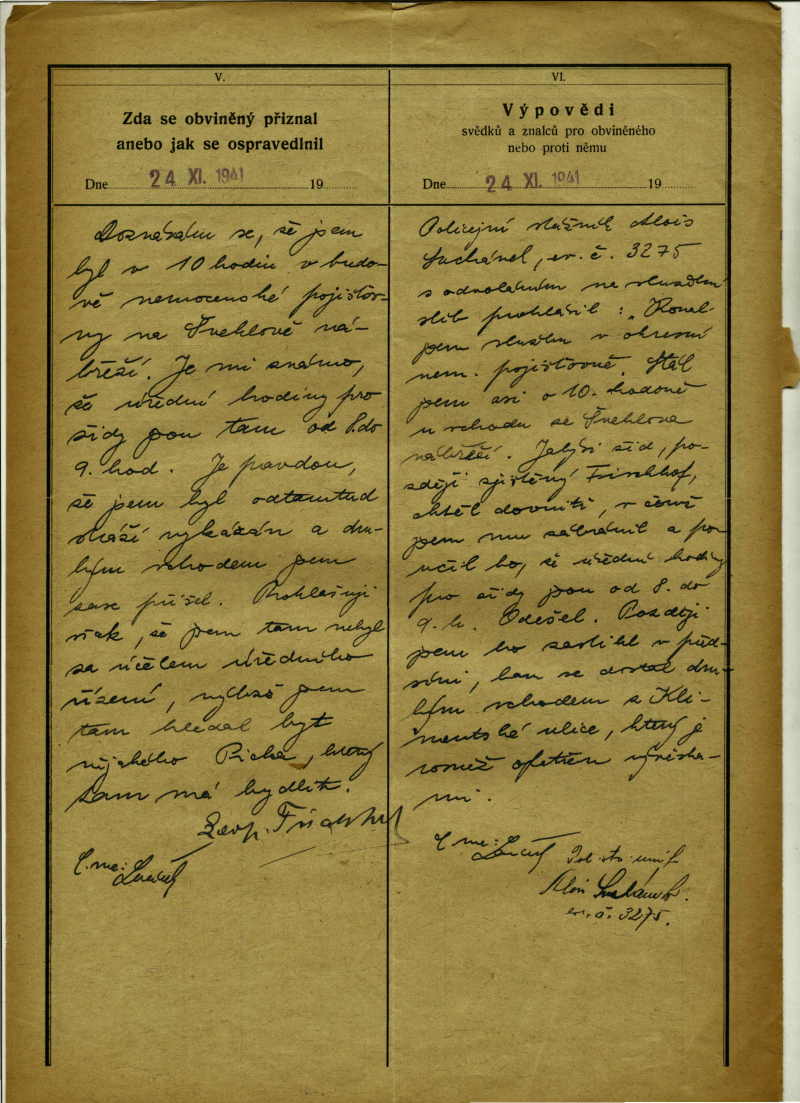 V.
Zda se obviněný přiznal
anebo jak se ospravedlnil
Dne 24 XI. 1941 19
Doznávám se, že jsem
byl v 10 hodin v budo-
vě nemocenské pojišťov-
ny na Švehlově ná-
břeží. Je mi známo,
že úřední hodiny pro
židy jsou tam od 8. do
9. hod. Je pravdou,
že jsem byl odtamtud
stráží vykázán a dru-
hým vchodem jsem
zase přišel. Prohlašuji
však, že jsem tam nebyl
za účelem úředního
řízení, nýbrž jsem
tam hledal byt
nějakého Picka, který
tam má bydlet.
Leop. Frischhof
VI.
Výpovědi
svědků a znalců pro obviněného
nebo proti němu
Dne 24 XI. 1941 19
Policejní strážník Alois
ev. č. 3275
s odvoláním na služební
slib prohlásil: „Konal
jsem službu v okresní
nem. pojišťovně. Stál
jsem asi o 10. hodině
u vchodu ze Švehlova
nábřeží. Jakýsi žid, po-
zději zjištěný Frischhof,
chtěl dovnitř, v čemž
jsem mu zabránil a pou-
učil ho, že úřední hodiny
pro židy jsou od 8. do
9. h. Odešel. Později
jsem ho zastihl v před-
síni, kam se dostal dru-
hým vchodem z Kli-
mentské ulice, který je
rovněž opatřen vývěska-
mi.
Pol. stráž. unif.
Alois
ev. č. 3275.